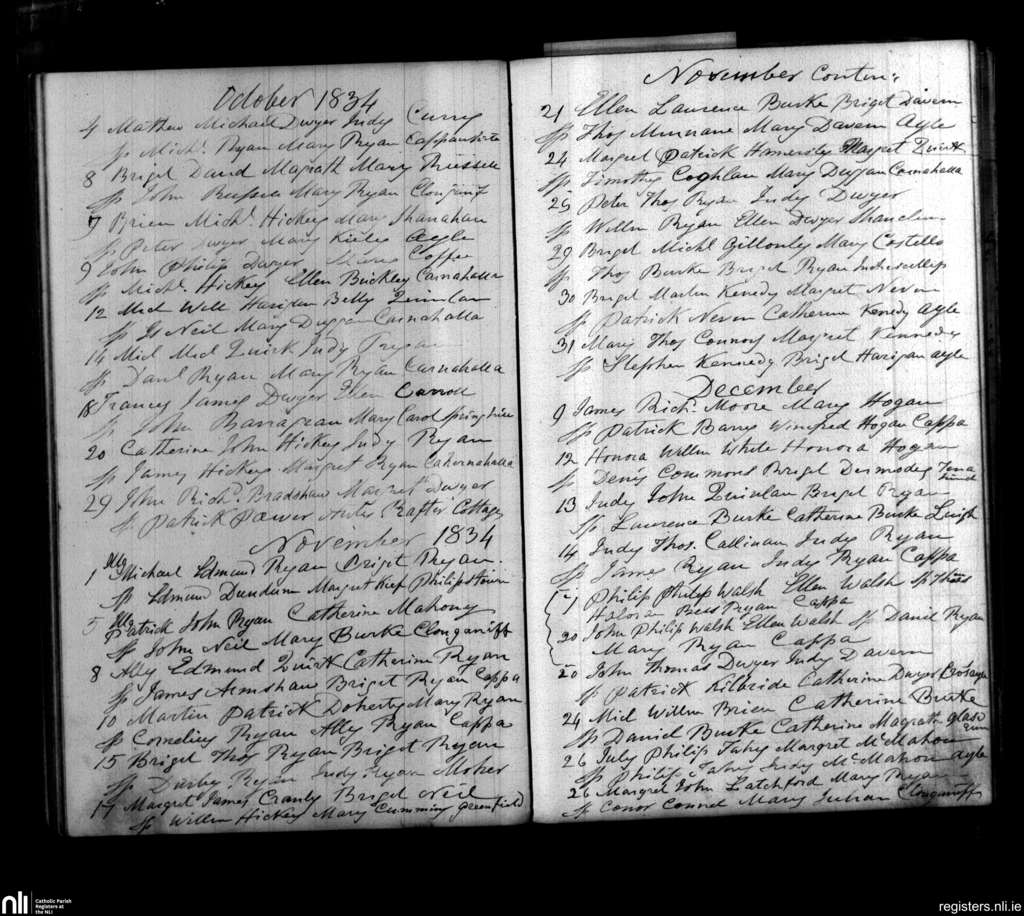 October 1834
4 Mathew Michael Dwyer Judy Curry
Sp Michl. Ryan Mary Ryan Cappanuke
8 Briget David Magrath Mary Russell
Sp John Russell Mary Ryan Clouganiff
9 Brien Michl. Hickey Mary Shanahan
Sp Peter Dwyer Mary Kieley Ayle
9 John Philip Dwyer Coffee
Sp Michl. Hickey Ellen Buckley Carnahalla
12 Mich Will Haridan Betty Quinlan
Sp Js Neil Mary Duggan Carnahalla
14 Mich Mich Quirk Judy Ryan
Sp Danl Ryan Mary Ryan Carnahalla
18 Frances James Dwyer Ellen Carroll
Sp John Mary Carol
20 Catherine John Hickey Judy Ryan
Sp James Hickey Margret Ryan Cahernahalla
29 John Richd. Bradshaw Margret Dwyer
Sp Patrick Power Rafter Cottage
November 1834
Illg
1 Michael Edmund Ryan Briget Ryan.
Sp Edmund Dundum Margret Keef Philipstown
Illg
5 Patrick John Ryan Catherine Mahony
Sp John Neil Mary Burke Clouganiff
8 Ally Edmund Quirk Catherine Ryan
Sp James Armshaw Briget Ryan Cappa
10 Martin Patrick Doherty Mary Ryan
Sp Cornelius Ryan Ally Ryan Cappa
15 Briget Thos Ryan Briget Ryan
Sp Darby Ryan Judy Ryan Moher
17 Margret James Cranly Briget Neil
Sp Willm Hickey Mary Cummins Greenfield
November Contin:
21 Ellen Laurence Burke Briget Davern
Sp Thos Munnane Mary Davern Ayle
24 Margret Patrick Margret Quirk
Sp Timothy Coghlan Mary Duggan Carnahalla
26 Peter Thos Ryan Judy Dwyer
Sp Willm Ryan Ellen Dwyer
29 Briget Michl Gilloonly Mary Costello
Sp Thos Burke Briget Ryan
30 Briget Martin Kenedy Margret Nevin
Sp Patrick Nevin Catherine Kenedy Ayle
31 Mary Thos Connors Margret Kennedy
Sp Stephen Kennedy Briget Harigan Ayle
December
9 James Richd. Moore Mary Hogan
Sp Patrick Barry Winifred Hogan Cappa
12 Honora Willm White Honora Hogan
Sp Denis Commons Briget Dermody
13 Judy John Quinlan Briget Ryan
Sp Laurence Burke Catherine Burke
14 Judy Thos. Callinan Judy Ryan
Sp James Ryan Judy Ryan Cappa
Philip Philip Walsh Ellen Walsh Sp Thos
Ryan Cappa
20 John Philip Walsh Ellen Walsh Sp David Ryan
Mary Ryan Cappa
20 John Thomas Dwyer Judy Davern
Sp Patrick Kilbride Catherine Dwyer
24 Mich Willm Brien Catherine Burke
Sp Daniel Burke Catherine Magrath
26 July Philip Fahy Margret McMahon
Sp Philip Fahy Judy McMahon Ayle
26 Margret John Latchford Mary Ryan
Sp Conor Connel Mary Julian Clouganiff
nli
Catholic Parish
Registers at
the NLI
registers.nli.ie